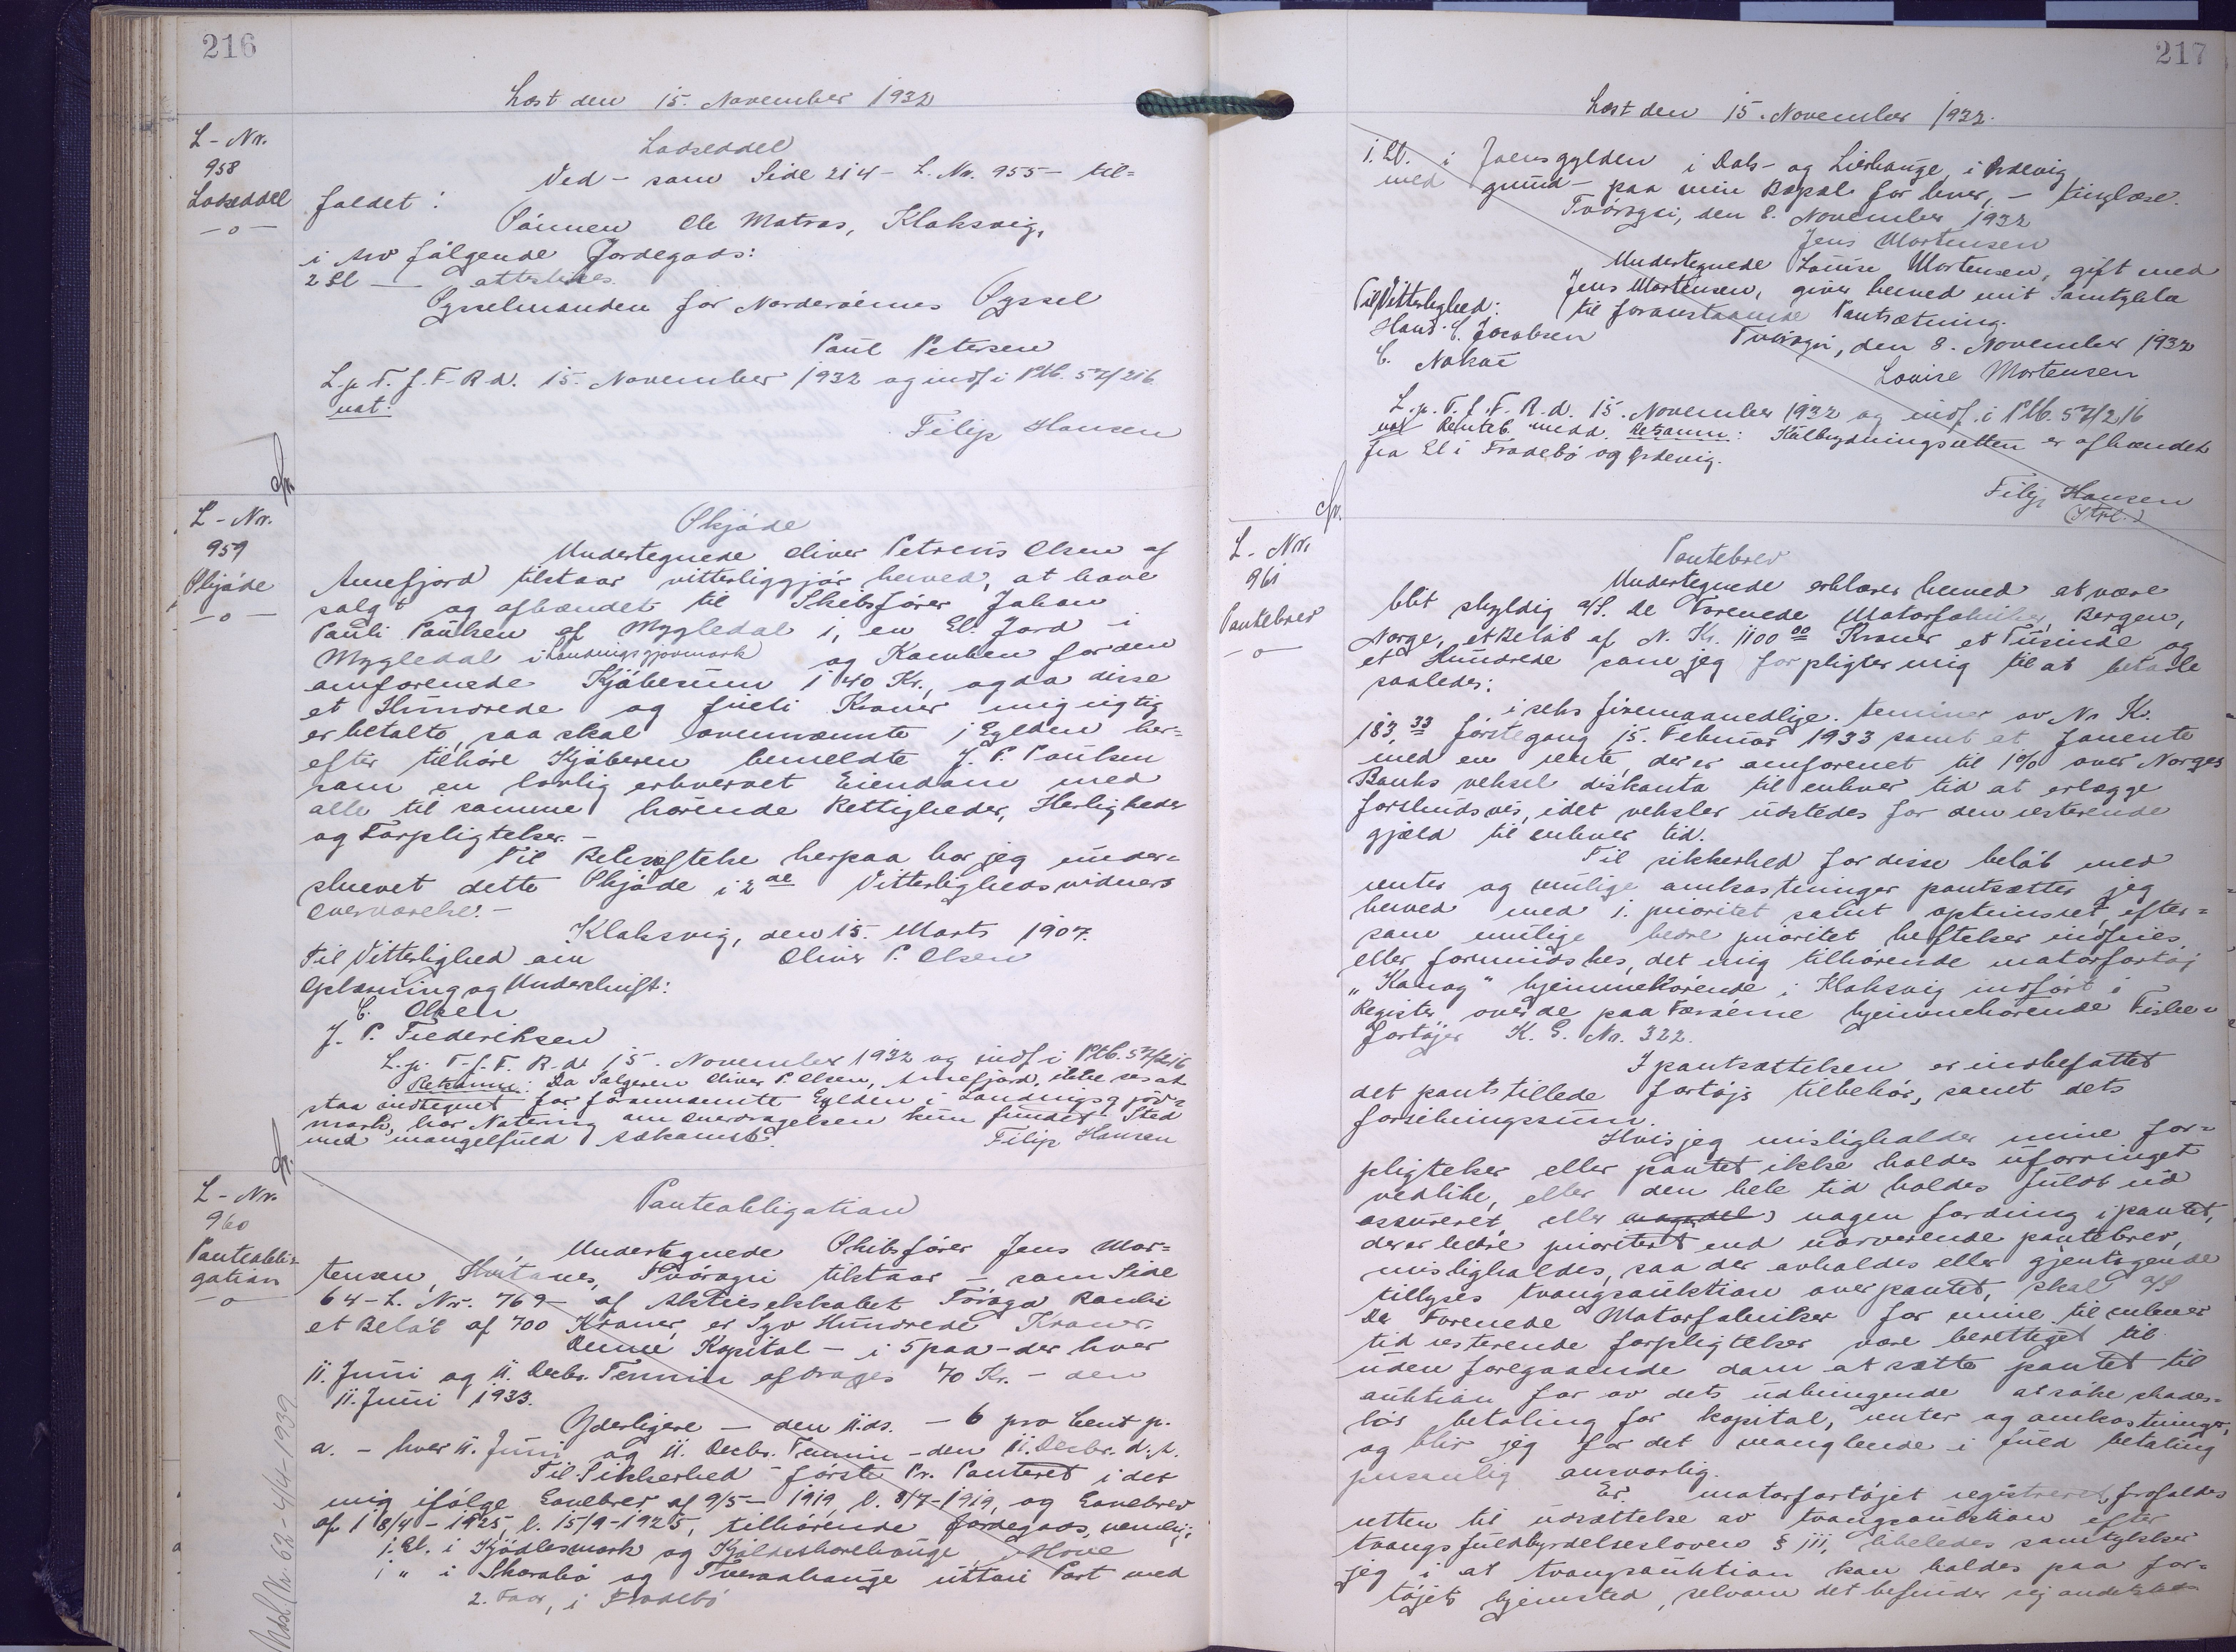 216
Læst den 15. November 1932
L-Nr.
958
Lodseddel
-o-
Lodseddel
Ved - som Side 214 - L. Nr. 955 - til=
faldet:
Sönnen Ole Matras, Klaksvig,
i Arv fölgende Jordegods:
2 Gl — attesteres.
Sysselmanden for Norderöernes Syssel
Paul Petersen
L. p. T. f. F. R. d. 15. November 1932 og indf i Ptb. 57/216
not:
Filip Hansen
L-Nr.
959
Skjöde
-o-
Skjöde
Undertegnede Oliver Petreus Olsen af
Arnefjord tilstaar vitterliggjör herved, at have
solgt og afhændet til Skibsförer Johan
Pauli Poulsen af Mygledal 1, en Gl. Jord i
Mygledal i Landningsgjovmark og Kamben for den
omforenede Kjöbesum 140 Kr., og da disse
et Hundrede og fireti Kroner mig rigtig
er betalte, saa skal ovennævnte 1 Gylden her=
efter tilhöre Kjöberen bemeldte J. P. Poulsen
som en lovlig erhvervet Eiendom med
alle til samme hörende Rettigheder, Herligheder
og Forpligtelser.-
Til Bekræftelse herpaa har jeg under=
skrevet dette Skjöde i 2de Vitterlighedsvidners
Overværelse.-
Klaksvig, den 15. Marts 1907.
Til Vitterlighed om Oliver P. Olsen
Oplæsning og Underskrift:
C. Olsen
J. P. Frederiksen
L. p. T. f. F. R. d. 15. November 1932 og indf i Ptb. 57/216
Retsanm: Da Sælgeren Oliver P. Olsen, Arnefjord, ikke ses at
staa indtegnet for förnævnte Gylden i Landningsgjov=
mark, har Notering om Overdragelsen kun fundet Sted
med mangelfuld Adkomst.
Filip Hansen
L-Nr.
960
Panteobli=
gation
-o-
Panteobligation
Undertegnede Skibsförer Jens Mor=
tensen, Hvitanes, Tvöragri tilstaar - som Side
64 - L. Nr. 769 - af Aktieselskabet Föroya Banki
et Belöb af 700 Kroner, er Syv Hundrede Kroner.
Denne Kapital - i 5 paa - der hver
11. Juni og 11. Decbr. Termin afdrages 70 Kr. - den
11. Juni 1933.
Yderligere - den 11. ds. - 6 pro Cent p.
a. - hver 11. Juni og 11. Decbr. Termin - den 11. Decbr. d. A.
Til Sikkerhed - förste Pr. Panteret i det
mig ifölge Gavebrev af 9/5 - 1919, l. 8/7-1919, og Gavebrev
af 18/4 - 1925, l. 15/9-1925, tilhörende Jordegods, nemlig:
1 Gl. i Kjödlesmark og Hove
1 " i Skarabö og Tveraahauge uttari Part med
2. Faar, i Trodebö
217
Læst den 15. November 1932.
1. Gl. i Joensgylden i Dals- og Lierhauge, i Ördevig
med grund - paa min Bopæl for hver, - tinglæse.
Tvöragri, den 8. November 1932
Jens Mortensen
Undertegnede Louise Mortensen, gift med
Jens Mortensen, giver herved mit Samtykke
Til Vitterlighed: til foranstaaende Pantsætning.
Hans C. Jacobsen Tvöragri, den 8. November 1932
C. Nolsöe Louise Mortensen
L. p. T. f. F. R. d. 15. November 1932 og indf. i Ptb. 57/216
not Renteb. medd. Retsanm: Kulbrydningsretten er afhændet
fra Gl i Trodebö og Ördevig.
Filip Hansen
L-Nr.
961
Pantebrev
-o-
Pantebrev
Undertegnede erklærer herved at være
blit skyldig a/s. De Forenede Motorfabriker, Bergen,
Norge, et Belöb af N. Kr. 1100 00 Kroner et Tusinde og
et Hundrede som jeg forpligter mig til at betale
saaledes:
i seks firemaanedlige terminer av N. Kr.
183,33 förste gang 15. Februar 1933 samt at forrente
med en rente, der er omforenet til 1% over Norges
Banks veksel diskonto til enhver tid at erlægge
forskudsvis, idet veksler udstedes for den resterende
gjæld til enhver tid.
Til sikkerhed for disse belöb med
renter og mulige omkostninger pantsætter jeg
herved med 1. prioritet samt optrinsret, efter=
som mulige bedre prioritet heftelser indfries
eller formindskes, det mig tilhörende motorfartöj
"Kanog" hjemmehörende i Klaksvig indfört i
Register over de paa Færöerne hjemmehörende Fiske=
fartöjer K. G. Nr. 322.
I pantsættelsen er indbefattet
det pantstillede fartöjs tilbehör, samt dets
forsikringssum.
Hvis jeg misligholder mine for=
pligtelser eller pantet ikke holdes uforringet
vedlike, eller den hele tid holdes fuldt ud
assureret, eller nogen fordring i pantet,
der er bedre prioritert end nærværende pantebrev,
misligholdes, saa der avholdes eller gjentagende
tillyses tvangsauktion over pantet, skal a/s
De Forenede Motorfabriker for mine til enhver
tid resterende forpligtelser være berettiget til
uden foregaaende dom at sætte pantet til
auktion for av dets udbringende at söke skades=
lös betaling for kapital, renter og omkostninger,
og blir jeg for det manglende i fuld betaling
personlig ansvarlig.
Er motorfartöjet registreret, frafaldes
retten til udsættelse av tvangsauktion efter
tvangsfuldbyrdelsesloven § 111, likeledes samtykker
jeg i at tvangsauktion kan holdes paa far=
töjets hjemsted, selvom det befinder sig andetsteds
Notat. 62 - 4/4-1939